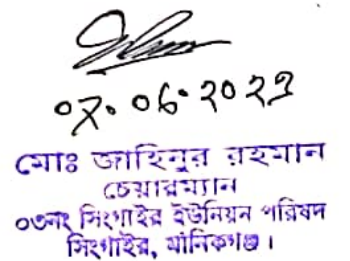 ০৭.০৬.২০২৩
মোঃ জাহিনুর রহমান
চেয়ারম্যান
০৩নং সিংগাইর ইউনিয়ন পরিষদ
সিংগাইর, মানিকগঞ্জ।